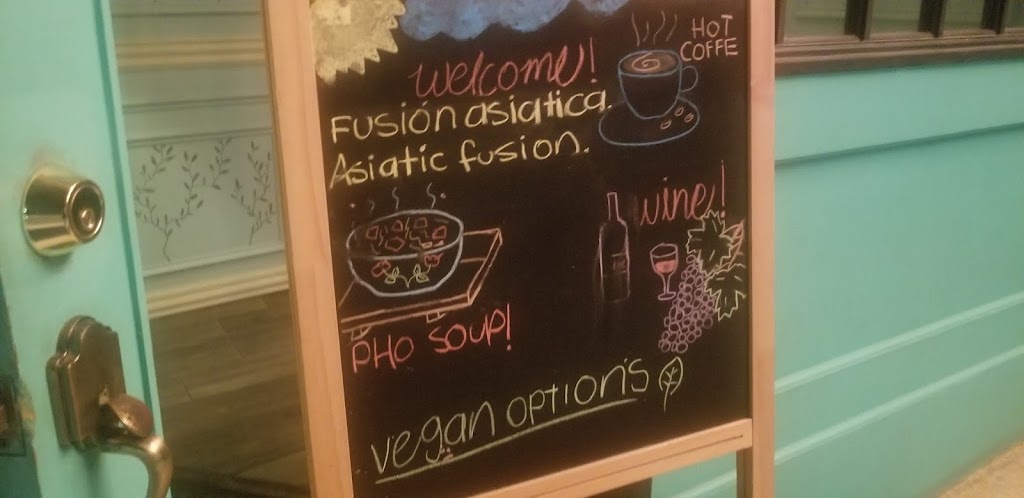 welcome!
HOT
COFFE
Fusión asiatica.
Asiatic fusion.
wine!
PHO SOUP!
vegan OPTION'S